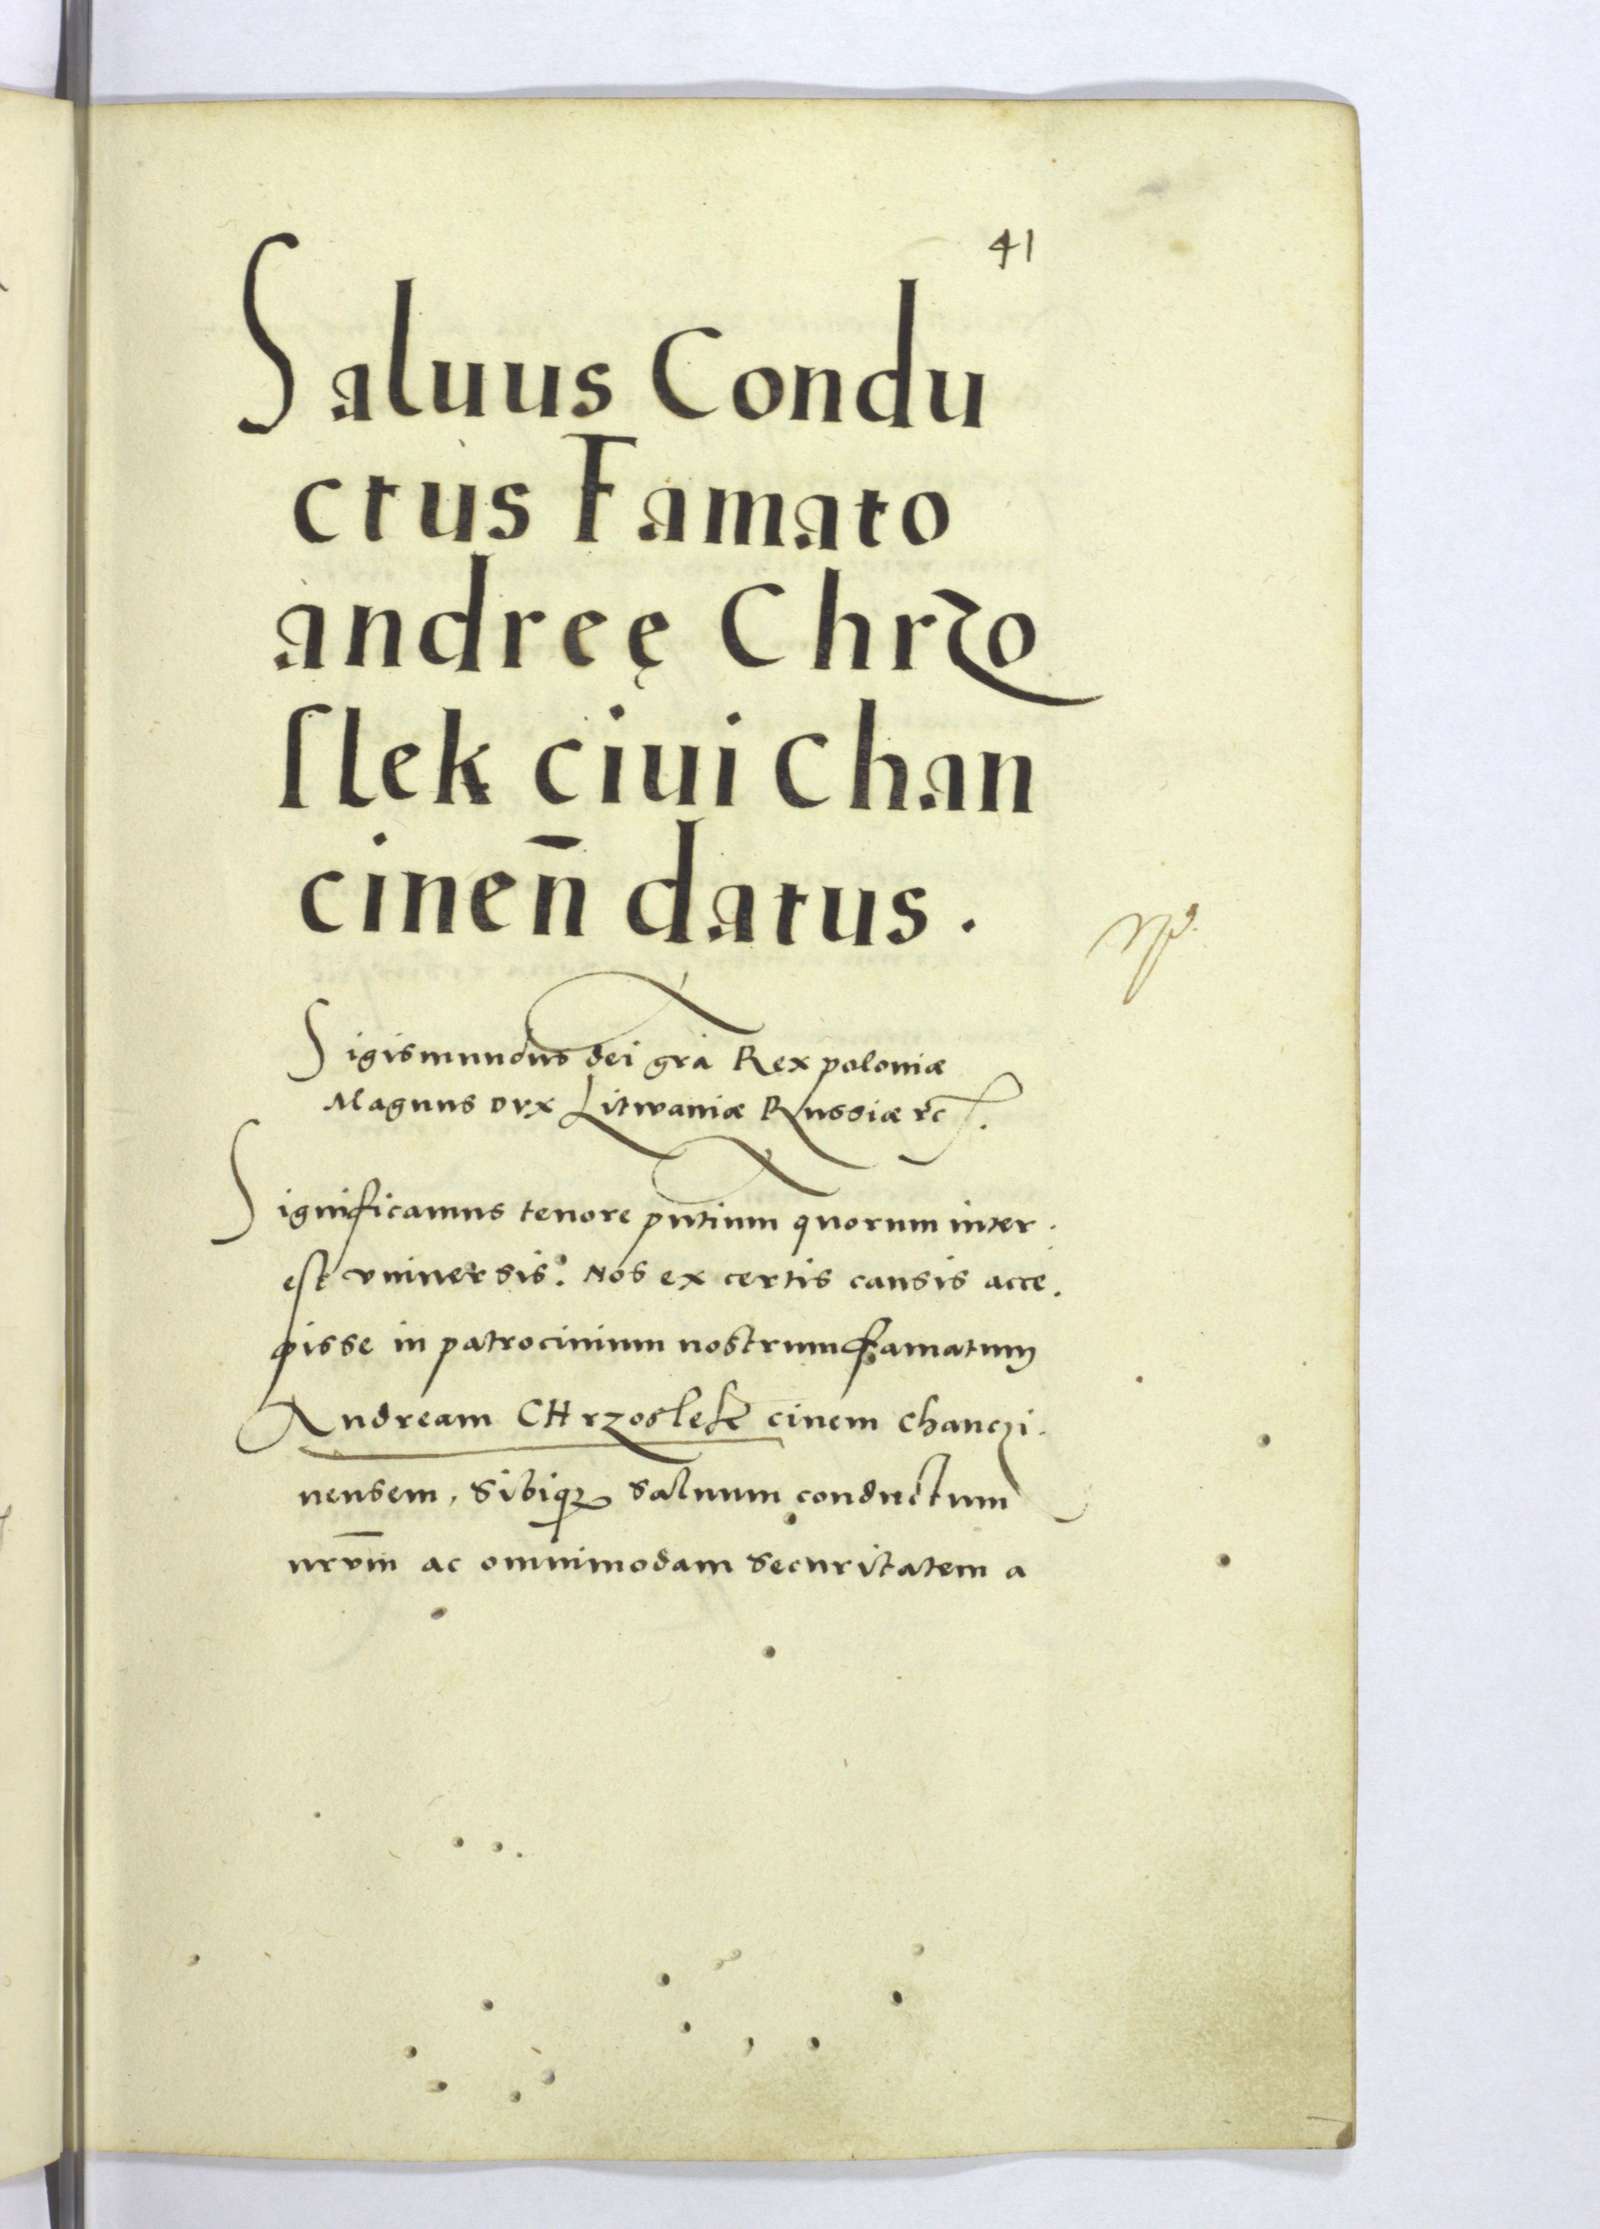 41
Saluus Condu
ctus Famato
andreę Chrzo
ſlek ciui Chan
cinen̄ datus.
Sigismundus dei gra Rex poloniæ
Magnus Dvx Litwaniæ Russiæ ꝛc.
Significamus tenore pntium quorum inter.
est vniversis. Nos ex certis causis acce.
pisse in patrocinium nostrum famatum
Andream CHrzoslek civem chanczi.
nensem, sibiqꝫ saluum conductum
nrvm ac omnimodam securitatem a